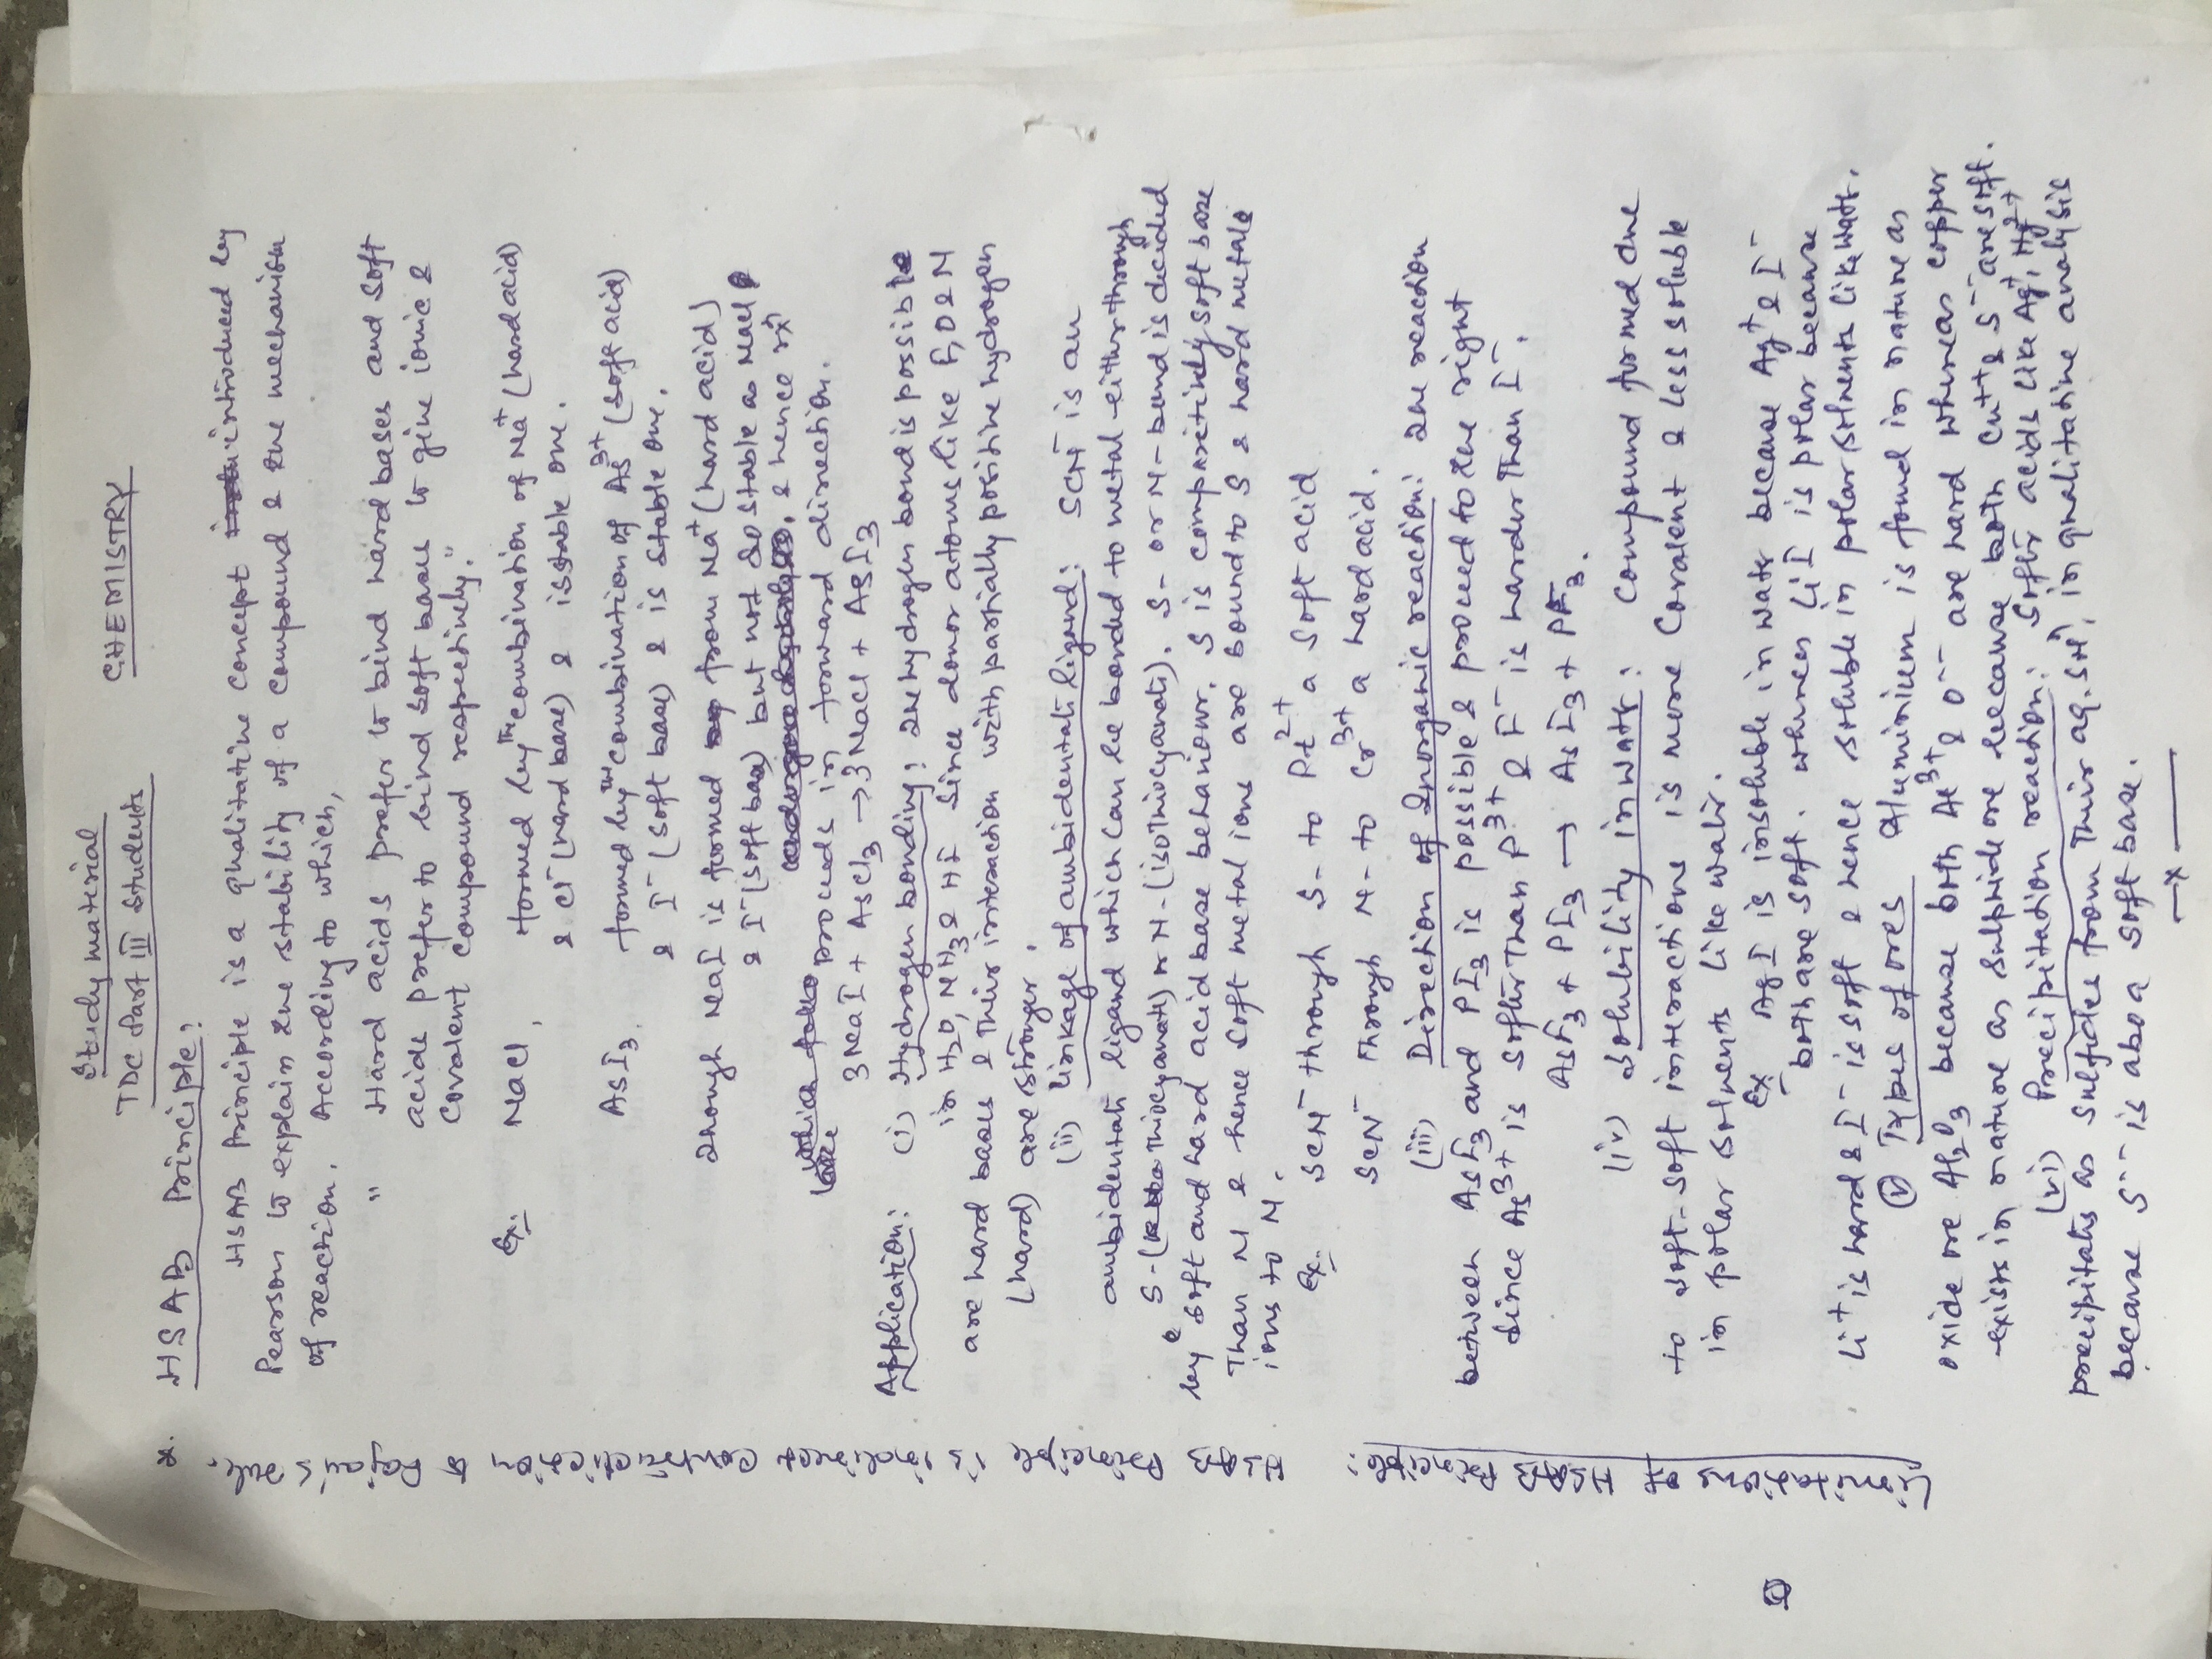 Study material CHEMISTRY
TDC Part III Students
* HSAB Principle:
HSAB Principle is a qualitative concept introduced by
Pearson to explain the stability of a compound & the mechanism
of reaction. According to which,
" Hard acids prefer to bind hard bases and soft
acids prefer to bind soft bases to give ionic &
Covalent compound respectively."
Ex: NaCl, formed by the combination of Na+ (hard acid)
& Cl- (hard base) & is stable one.
AsI3. formed by the combination of As3+ (soft acid)
& I- (soft base) & is stable one.
Though NaI is formed from Na+ (hard acid)
& I- (soft base) but not so stable as NaCl
& hence rxn
proceeds in forward direction.
3NaI + AsCl3 → 3NaCl + AsI3
Application: (i) Hydrogen bonding: The hydrogen bond is possible
in H2O, NH3 & HF since donor atoms like F, O & N
are hard bases & their interaction with partially positive hydrogen
(hard) are stronger.
(ii) Linkage of ambidentate ligand: SCN- is an
ambidentate ligand which can be bonded to metal either through
S-(thiocyanate) or N-(isothiocyanate). S- or N- bond is decided
by soft and hard acid base behaviour. S is comparitively soft base
than N & hence soft metal ions are bound to S & hard metals
ions to N.
Ex. SCN- through S- to Pt2+ a soft acid
SCN- through N- to Cr3+ a hard acid.
(iii) Direction of Inorganic reaction: The reaction
between AsF3 and PI3 is possible & proceed to the right
since As3+ is softer than P3+ & F- is harder than I-.
AsF3 + PI3 → AsI3 + PF3.
(iv) Solubility in water: Compound formed due
to soft-soft interactions is more Covalent & less soluble
in polar solvents like water.
Ex AgI is insoluble in water because Ag+ & I-
both are soft. whereas LiI is polar because
Li+ is hard & I- is soft & hence soluble in polar solvents like water.
(v) Types of ores Aluminium is found in nature as
oxide ore Al2O3 because both Al3+ & O-- are hard whereas copper
exists in nature as sulphide ore because both Cu++ & S-- are soft.
(vi) Precipitation reaction: Softer acids like Ag+, Hg2+
precipitates as sulfides from their aq. soln, in qualitative analysis
because S-- is also a soft base.
—x—
Limitations of HSAB Principle:
HSAB Principle is